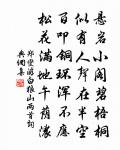 悬岩小阁碧梧桐
似有人声在半空
百叩铜环浑不应
松花满地午荫浓
郑燮游白狼山两首词
典网集